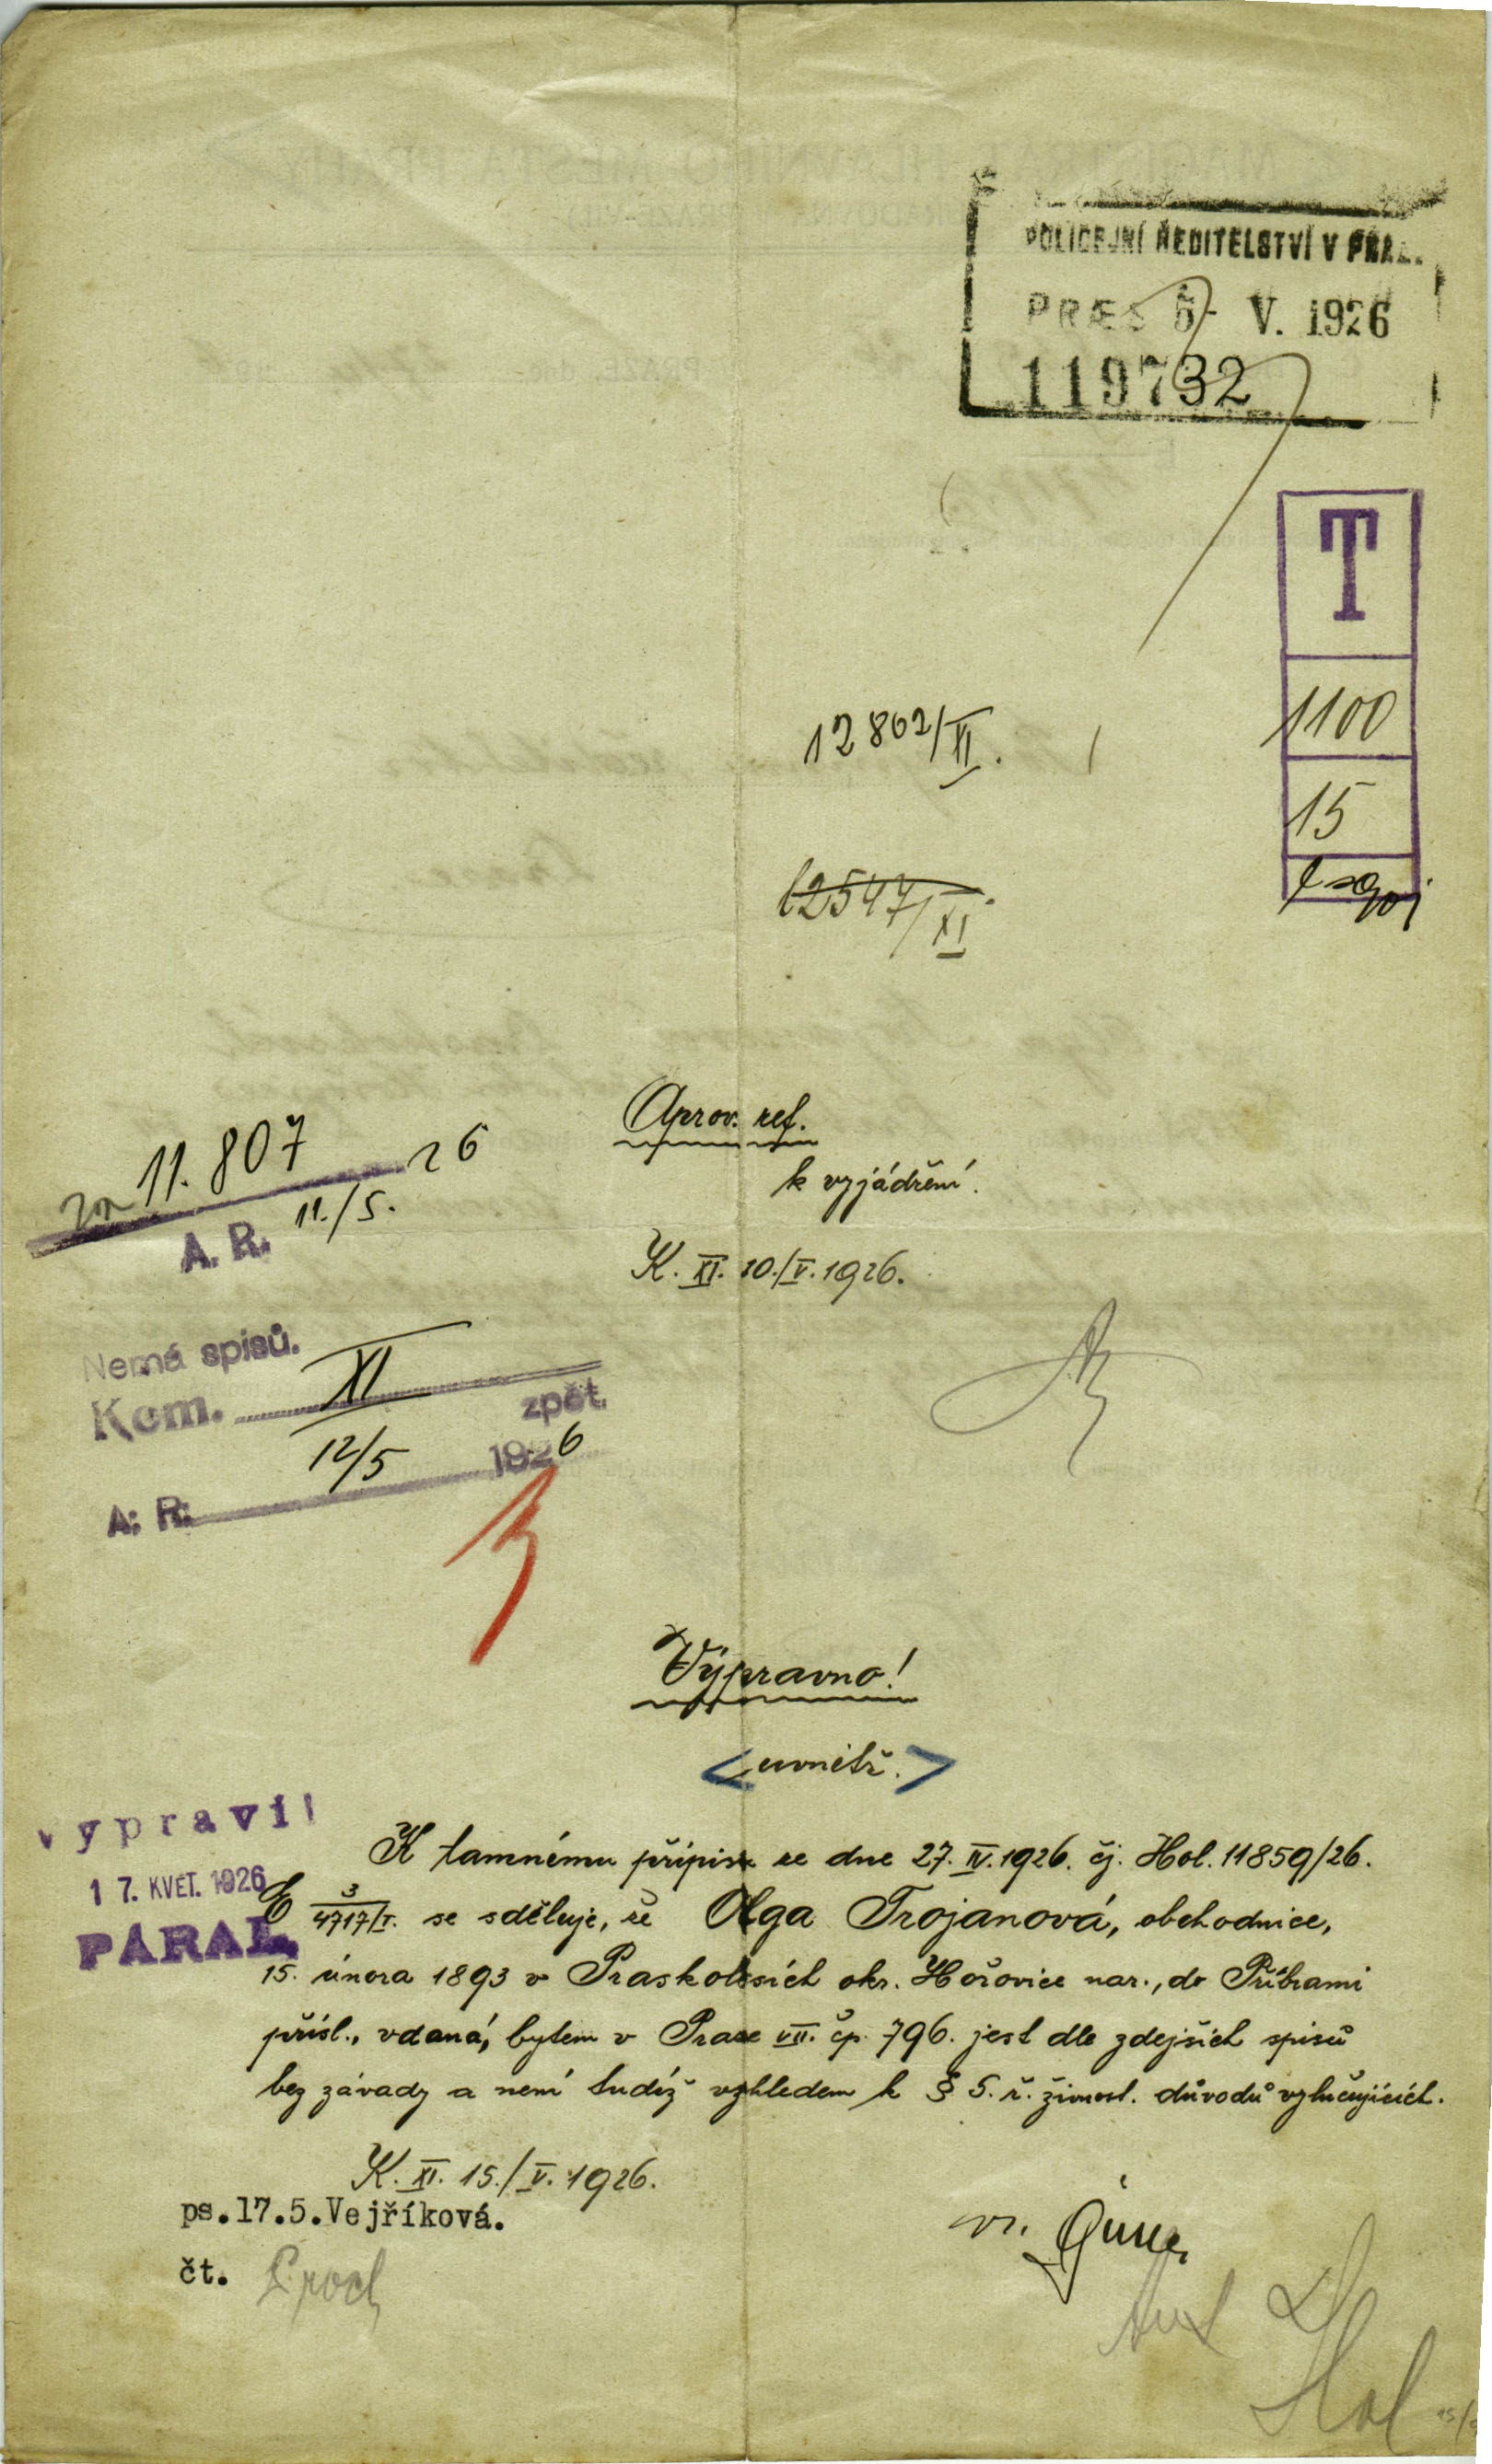 POLICEJNÍ ŘEDITELSTVÍ V PRAZ
PRÆS 5 - V. 1926
119732
T
1100
15
12862/XI.
12547/XI.
Aprov. ref.
k vyjádření.
K. XI. 10./V. 1926.
11.807 26
A. R. 11./5.
Nemá spisů.
Kom. XI zpět.
12/5 1926
A: R:
Výpravno!
<uvnitř.>
Vypravil
17. KVĚT. 1926
PARAL
K tamnému přípisu ze dne 27. IV. 1926. čj. Hol. 11859/26.
E 3/4717/I. se sděluje, že Olga Trojanová, obchodnice,
15. února 1893 v Praskolesích okr. Hořovice nar., do Příbrami
přísl., vdaná, bytem v Praze VII. čp. 796. jest dle zdejších spisů
bez závady a není tudíž vzhledem k § 5. ř. živnost. důvodů vylučujících.
K. XI. 15./V. 1926.
ps.17.5.Vejříková.
čt.
Hol